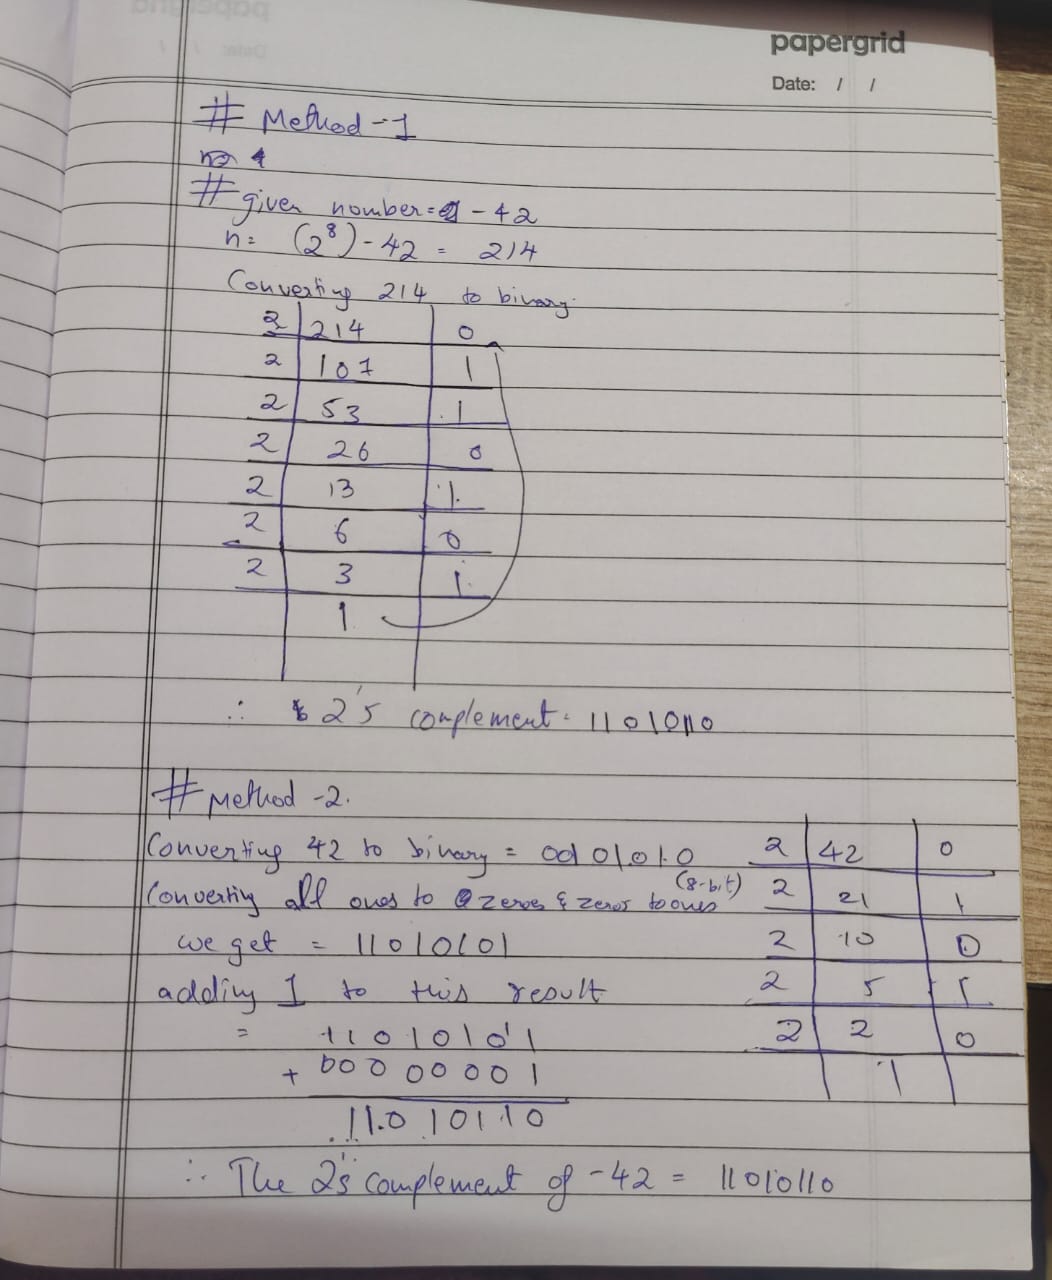 papergrid
Date: / /
# Method -1
# given number= -42
n= (2⁸) - 42 = 214
Converting 214 to binary.
2 214 0
2 107 1
2 53 1
2 26 0
2 13 1
2 6 0
2 3 1
1
∴ 2's complement = 11010110
# Method -2.
Converting 42 to binary = 00101010 (8-bit)
Converting all ones to zeroes & zeros to ones
we get = 11010101
adding 1 to this result
= 11010101
+ 00000001
11010110
2 42 0
2 21 1
2 10 0
2 5 1
2 2 0
1
∴ The 2's complement of -42 = 11010110